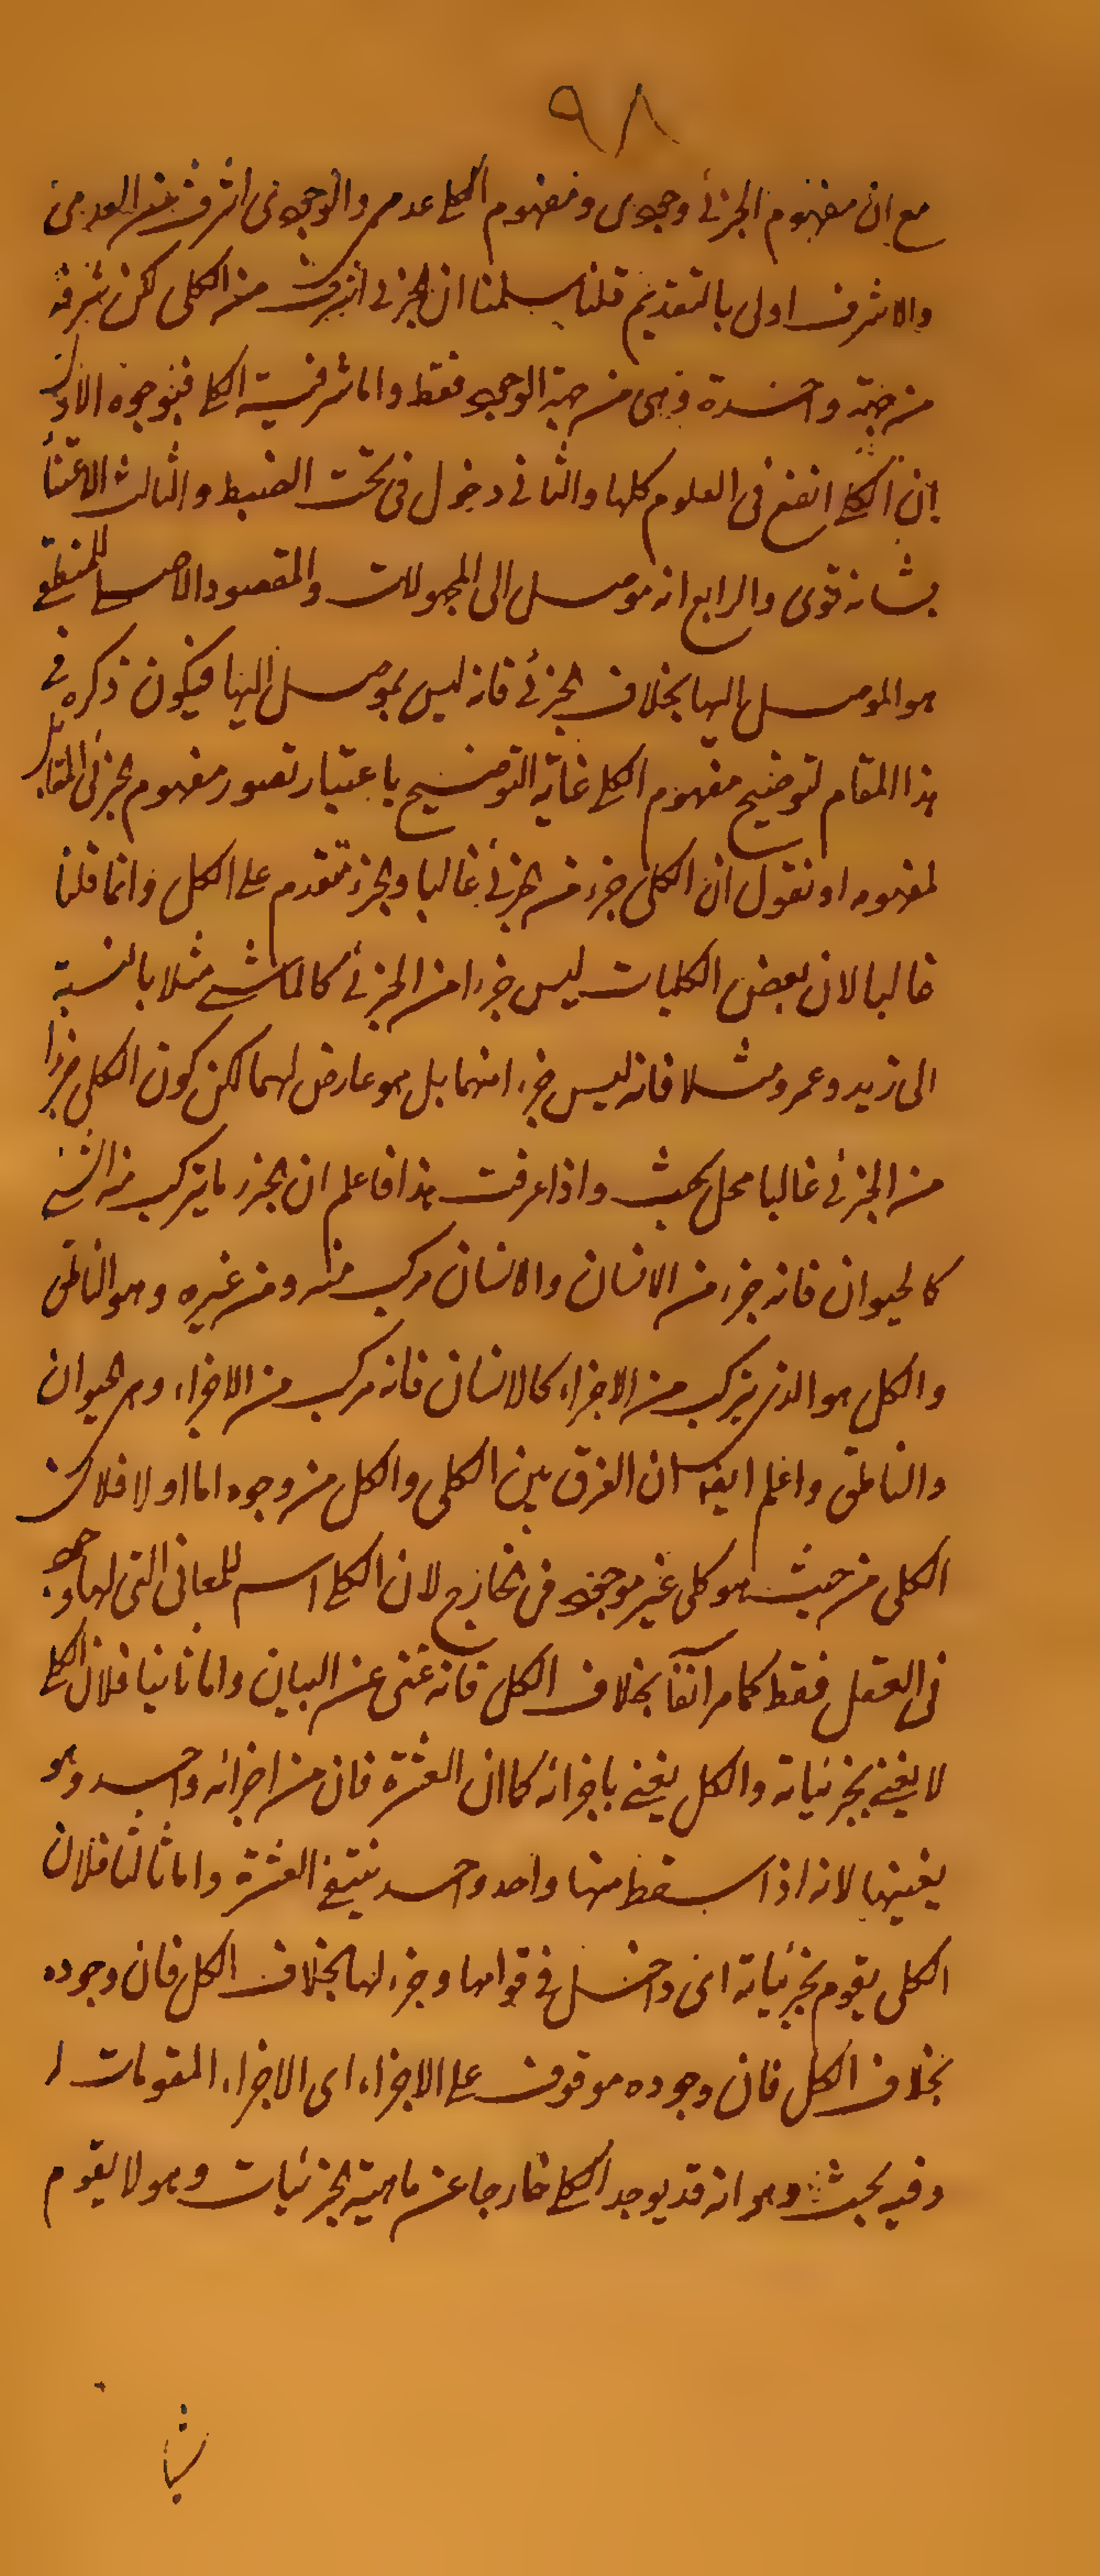 ٩٨
مع ان مفهوم الجزئى وجودى ومفهوم الكلى عدمى والوجودى اشرف من العدمى
والاشرف اولى بالتقديم قلنا سلمنا ان الجزئى اشرف من الكلى لكن شرفه
من جهة واحدة وهى من جهة الوجود فقط واما شرفية الكلى فبوجوه الاول
ان الكلى انفع فى العلوم كلها والثانى دخول فى تحت الضبط والثالث الاعتنأ
بشانه قوى والرابع انه موصل الى المجهولات والمقصود الاصلى للمنطقى
هو الموصل اليها بخلاف الجزئى فانه ليس بموصل اليها فيكون ذكره فى
هذا المقام لتوضيح مفهوم الكلى غاية التوضيح باعتبار تصور مفهوم الجزئى المقابل
لمفهومه او نقول ان الكلى جزء من الجزئى غالبا والجزء متقدم على الكل وانما قلنا
غالبا لان بعض الكليات ليس جزءا من الجزئى كالماشى مثلا بالنسبة
الى زيد وعمرو مثلا فانه ليس جزء امنهما بل هو عارض لهما لكن كون الكلى جزءا
من الجزئى غالبا محل بحث واذا عرفت هذا فاعلم ان الجزء ما يتركب منه الشئ
كالحيوان فانه جزء من الانسان والانسان مركب منه ومن غيره وهو الناطق
والكل هو الذى يتركب من الاجزاء كالانسان فانه مركب من الاجزاء وهى الحيوان
والناطق واعلم ايضا ان الفرق بين الكلى والكل من وجوه اما اولا فلان
الكلى من حيث هو كلى غير موجود فى الخارج لان الكلى اسم للمعانى التى لها وجود
فى العقل فقط كما مر آنفا بخلاف الكل فانه غنى عن البيان واما ثانيا فلان الكلى
لا يفنى بجزئياته والكل يفنى باجزائه كما ان العشرة فان من اجزائه واحد وهو
يفنيها لانه اذا سقط منها واحد واحد ينتفى العشرة واما ثالثا فلان
الكلى يقوم بجزئياته اى داخل فى قوامها وجزء لها بخلاف الكل فان وجوده
بخلاف الكل فان وجوده موقوف على الاجزاء اى الاجزاء المقومات
وفيه بحث وهو انه قد يوجد الكلى خارجا عن ماهية الجزئيات وهو لا يقوم